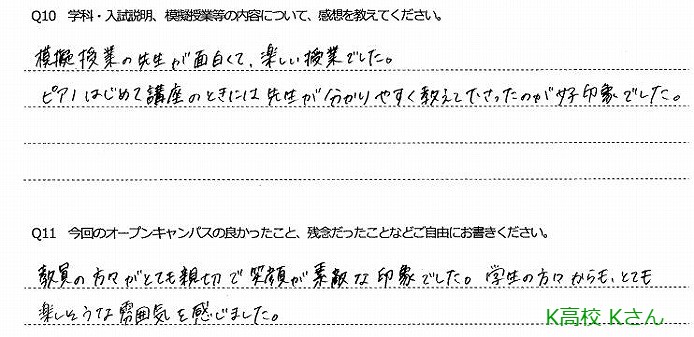 Q10 学科・入試説明、模擬授業等の内容について、感想を教えてください。
模擬授業の先生が面白くて、楽しい授業でした。
ピアノはじめて講座のときには先生が分かりやすく教えて下さったのが好印象でした。
Q11 今回のオープンキャンパスの良かったこと、残念だったことなどご自由にお書きください。
教員の方々がとても親切で笑顔が素敵な印象でした。学生の方々からも、とても
楽しそうな雰囲気を感じました。
K高校 Kさん